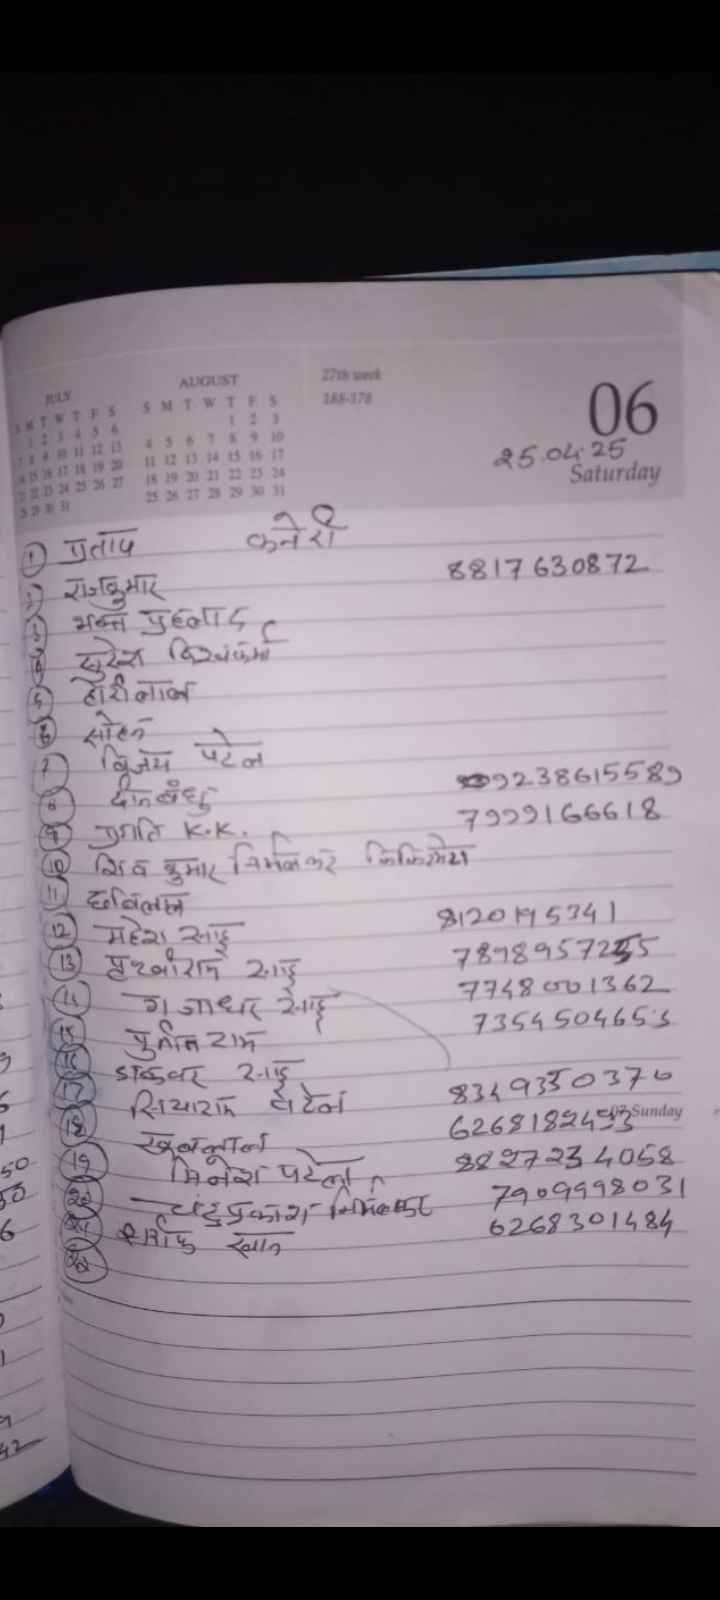 JULY
AUGUST
27th week
188-178
06
S M T W T F S
S M T W T F S
1 2 3 4 5 6
1 2 3
7 8 9 10 11 12 13
4 5 6 7 8 9 10
14 15 16 17 18 19 20
11 12 13 14 15 16 17
21 22 23 24 25 26 27
18 19 20 21 22 23 24
28 29 30 31
25 26 27 28 29 30 31
25.04.25
Saturday
① प्रताप कनेरी
2 राजकुमार 8817630872
3 भक्त प्रहलाद
सुरेश विश्वकर्मा
5 होरीलाल
6 सोहन
7 बृजेश पटेल
8 दीनबंधु 9238615589
9 प्रगति K.K. 7999166618
10 शिव कुमार निर्मलकर
11 छबिलाल
12 महेश साहू 8120195341
13 साहू
14 गजाधर साहू 7748001362
15 पुनीत राम 7354504653
साहू
17 सियाराम पटेल
18 खूबलाल
Sunday
19 मिनेश पटेल
चंद्रप्रकाश निर्मलकर 7909998031
शरीफ खान 6268301484